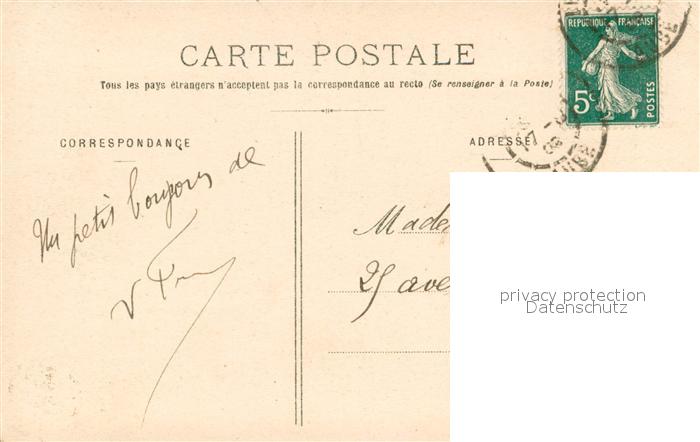 CARTE POSTALE
Tous les pays étrangers n'acceptent pas la correspondance au recto (Se renseigner à la Poste)
REPUBLIQUE FRANÇAISE
5c
POSTES
CORRESPONDANCE
ADRESSE
Un petit bonjour de
Made
25 ave
privacy protection
Datenschutz